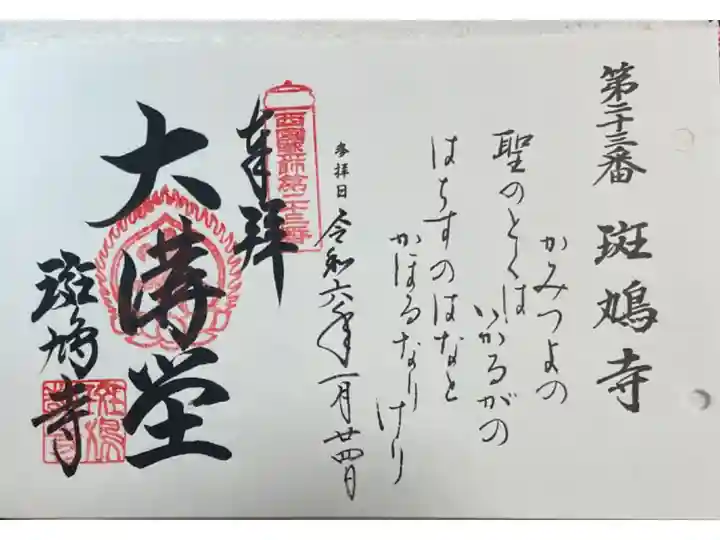 第二十三番 斑鳩寺
かみつよの
聖のとくは
いかるがの
はちすのはなと
かほるなり
けり
参拝日 令和六年一月廿四日
奉拝
西国薬師第二十三番
大講堂
斑鳩寺